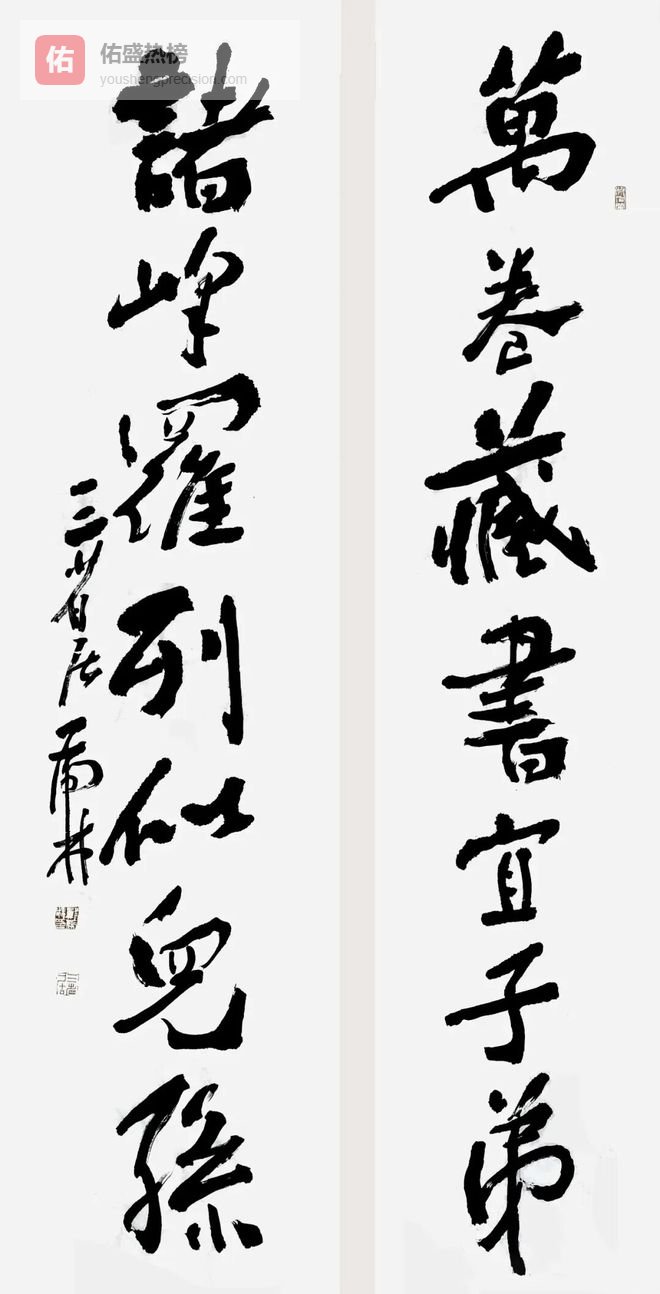 佑
佑盛热榜
youshengprecision.com
萬卷藏書宜子弟
諸峰羅列似兒孫
三省居